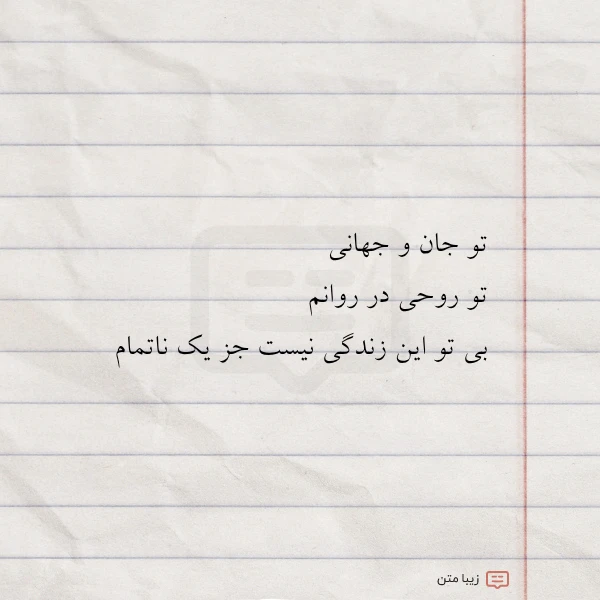 تو جان و جهانی
تو روحی در روانم
بی تو این زندگی نیست جز یک ناتمام
زیبا متن